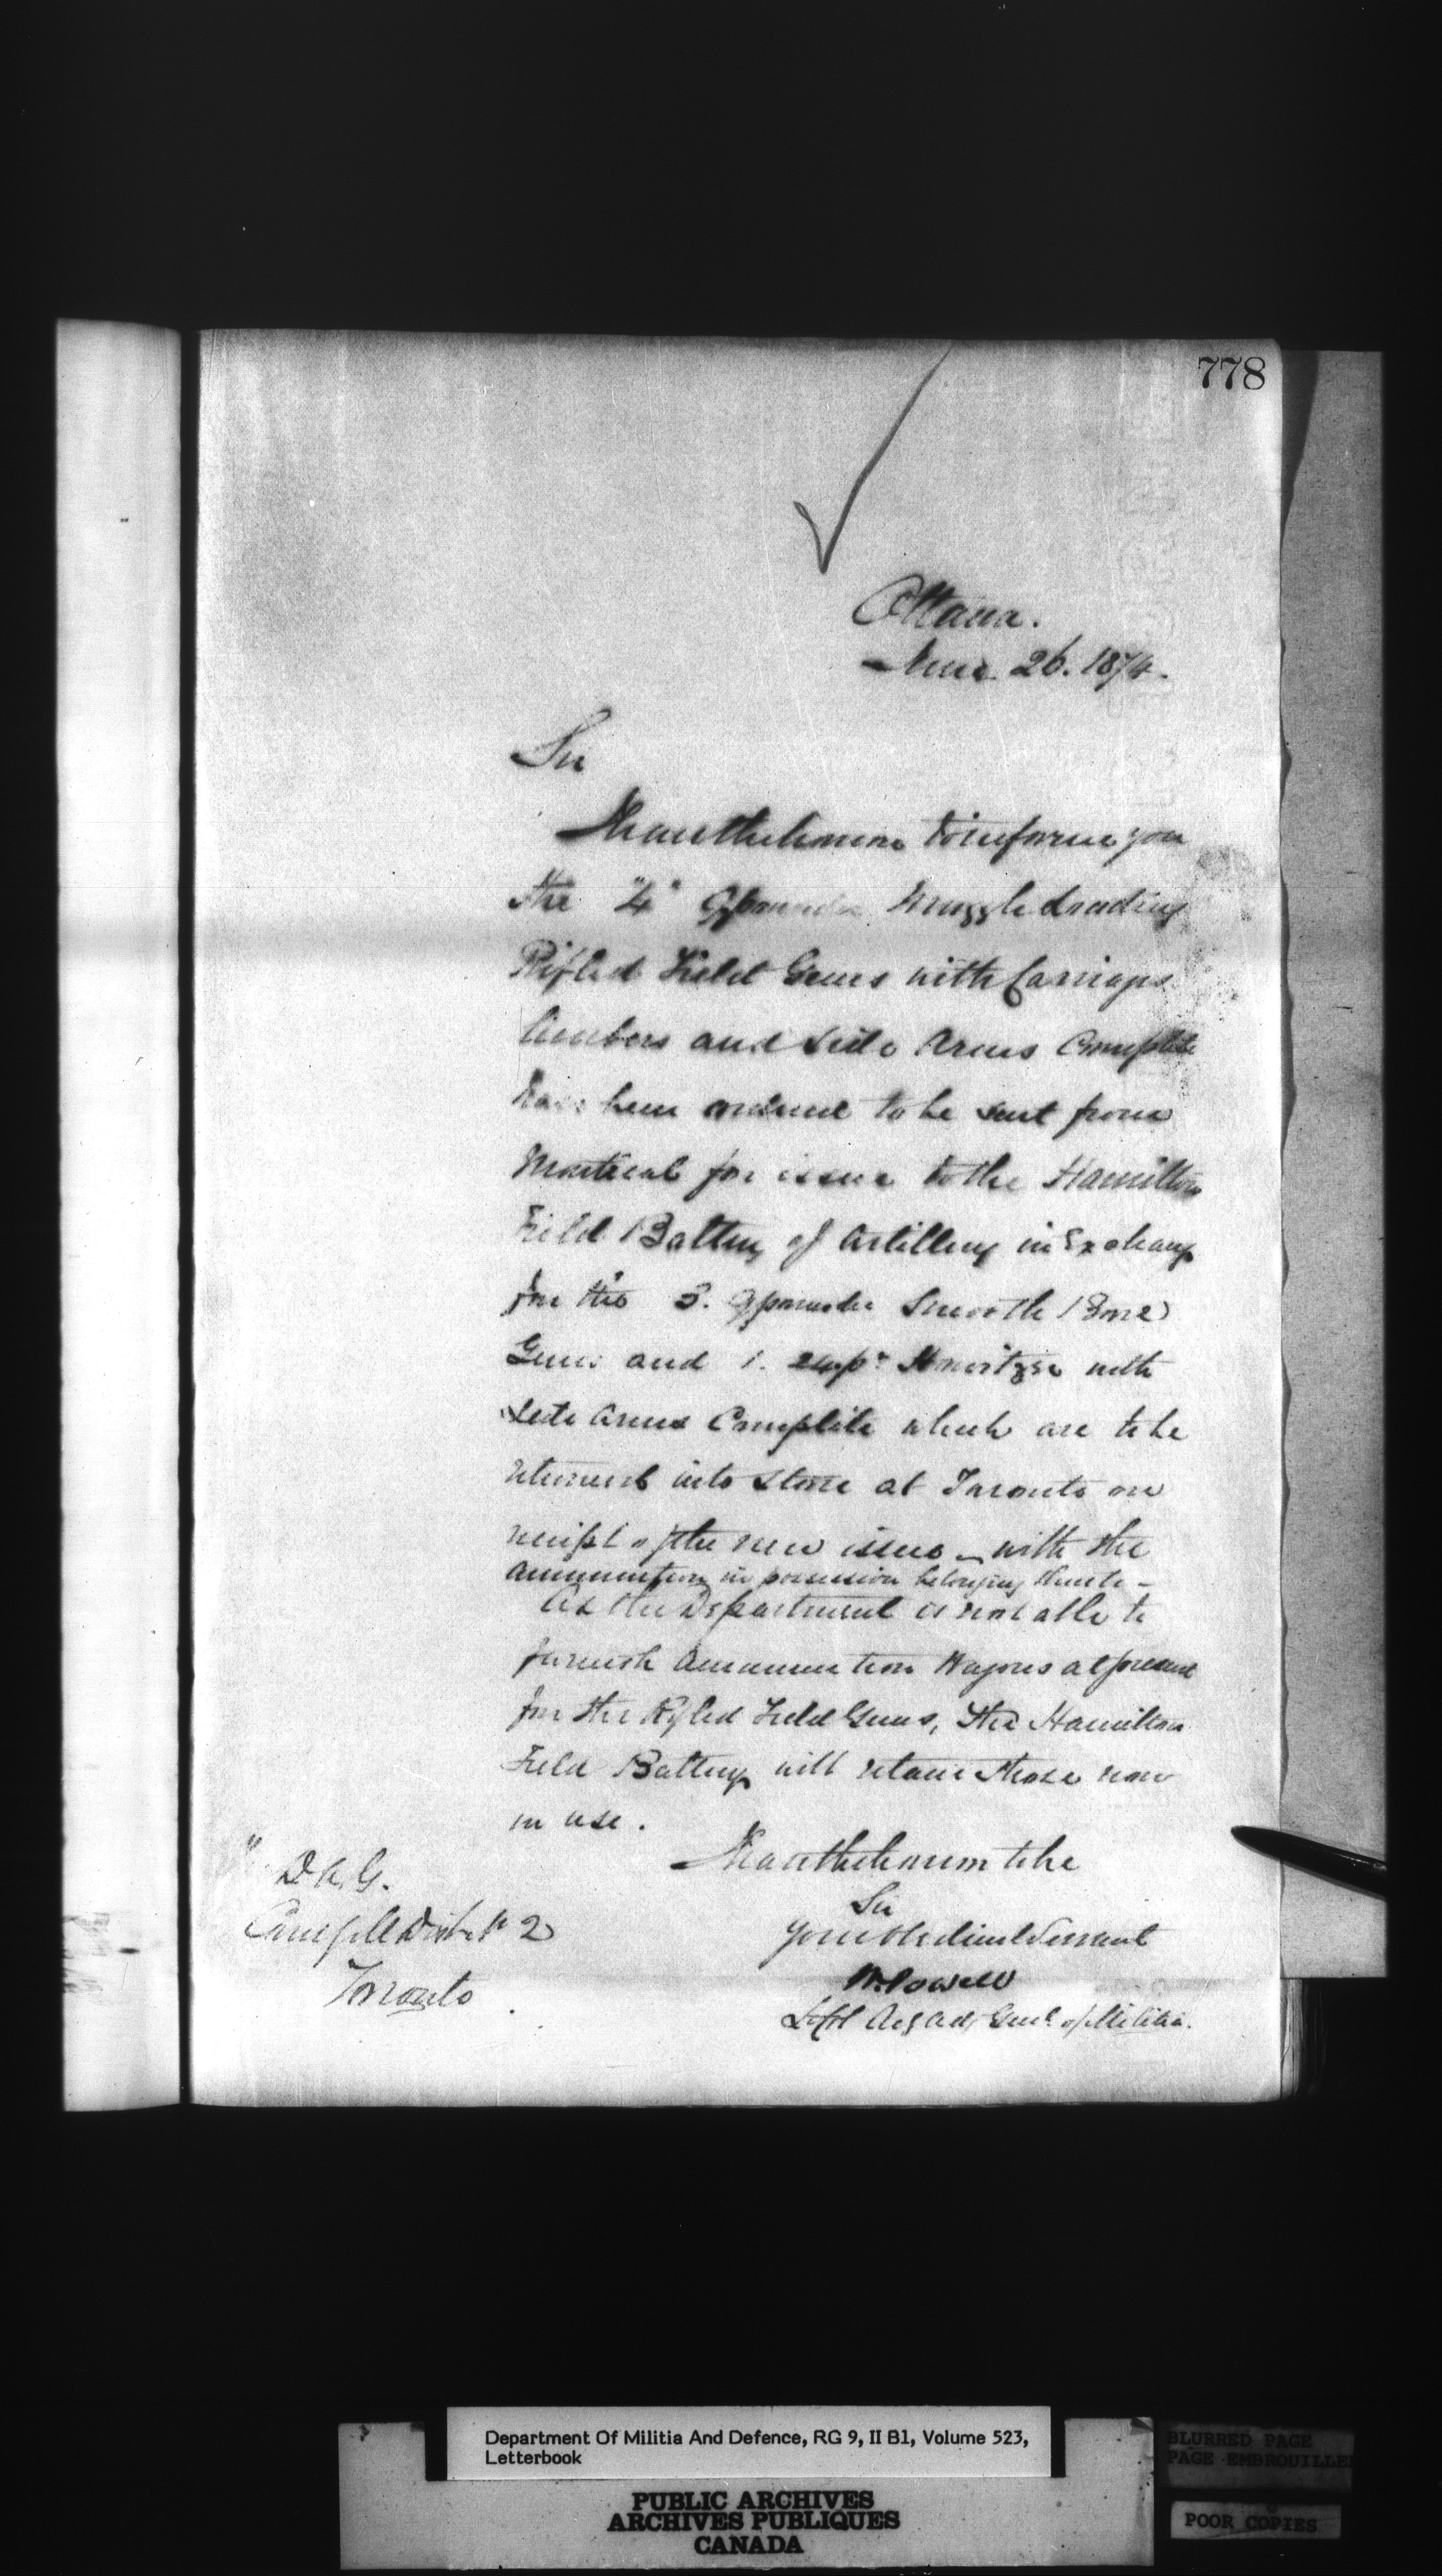 778
Ottawa.
June 26. 1874.
Sir
I have the honor to inform you
the "4" 9 pounder Muzzle Loading
Rifled Field Guns with Carriages
Limbers and Side Arms Complete
have been ordered to be sent from
Montreal for issue to the Hamilton
Field Battery of Artillery in Exchange
for the 3. 9 pounder Smooth Bore
Guns and 1. 24 pr Howitzer with
Side Arms Complete which are to be
returned into Store at Toronto on
receipt of the new issue — with the
ammunition in possession belonging thereto —
As the Department is not able to
furnish Ammunition Wagons at present
for the Rifled Field Guns, the Hamilton
Field Battery will retain those now
in use.
I have the honor to be
Sir
Your Obedient Servant
W. Powell
Lt Col Actg Adjt Genl of Militia.
D.A.G.
Comg Mil Dist. No 2
Toronto
Department Of Militia And Defence, RG 9, II B1, Volume 523,
Letterbook
PUBLIC ARCHIVES
ARCHIVES PUBLIQUES
CANADA
BLURRED PAGE
PAGE EMBROUILLE
POOR COPIES